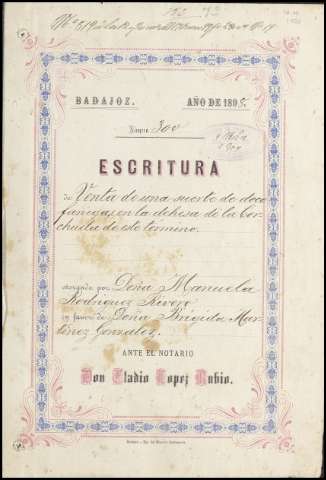 BADAJOZ. AÑO DE 189
Número 300
ESCRITURA
de Venta de una suerte de doce
fanegas en la dehesa de la Cor-
chuela de este termino.
otorgada por Doña Manuela
Rodriguez Rivero
en favor de Doña Brigida Mar-
tinez Gonzalez.
ANTE EL NOTARIO
Don Eladio Lopez Rubio.